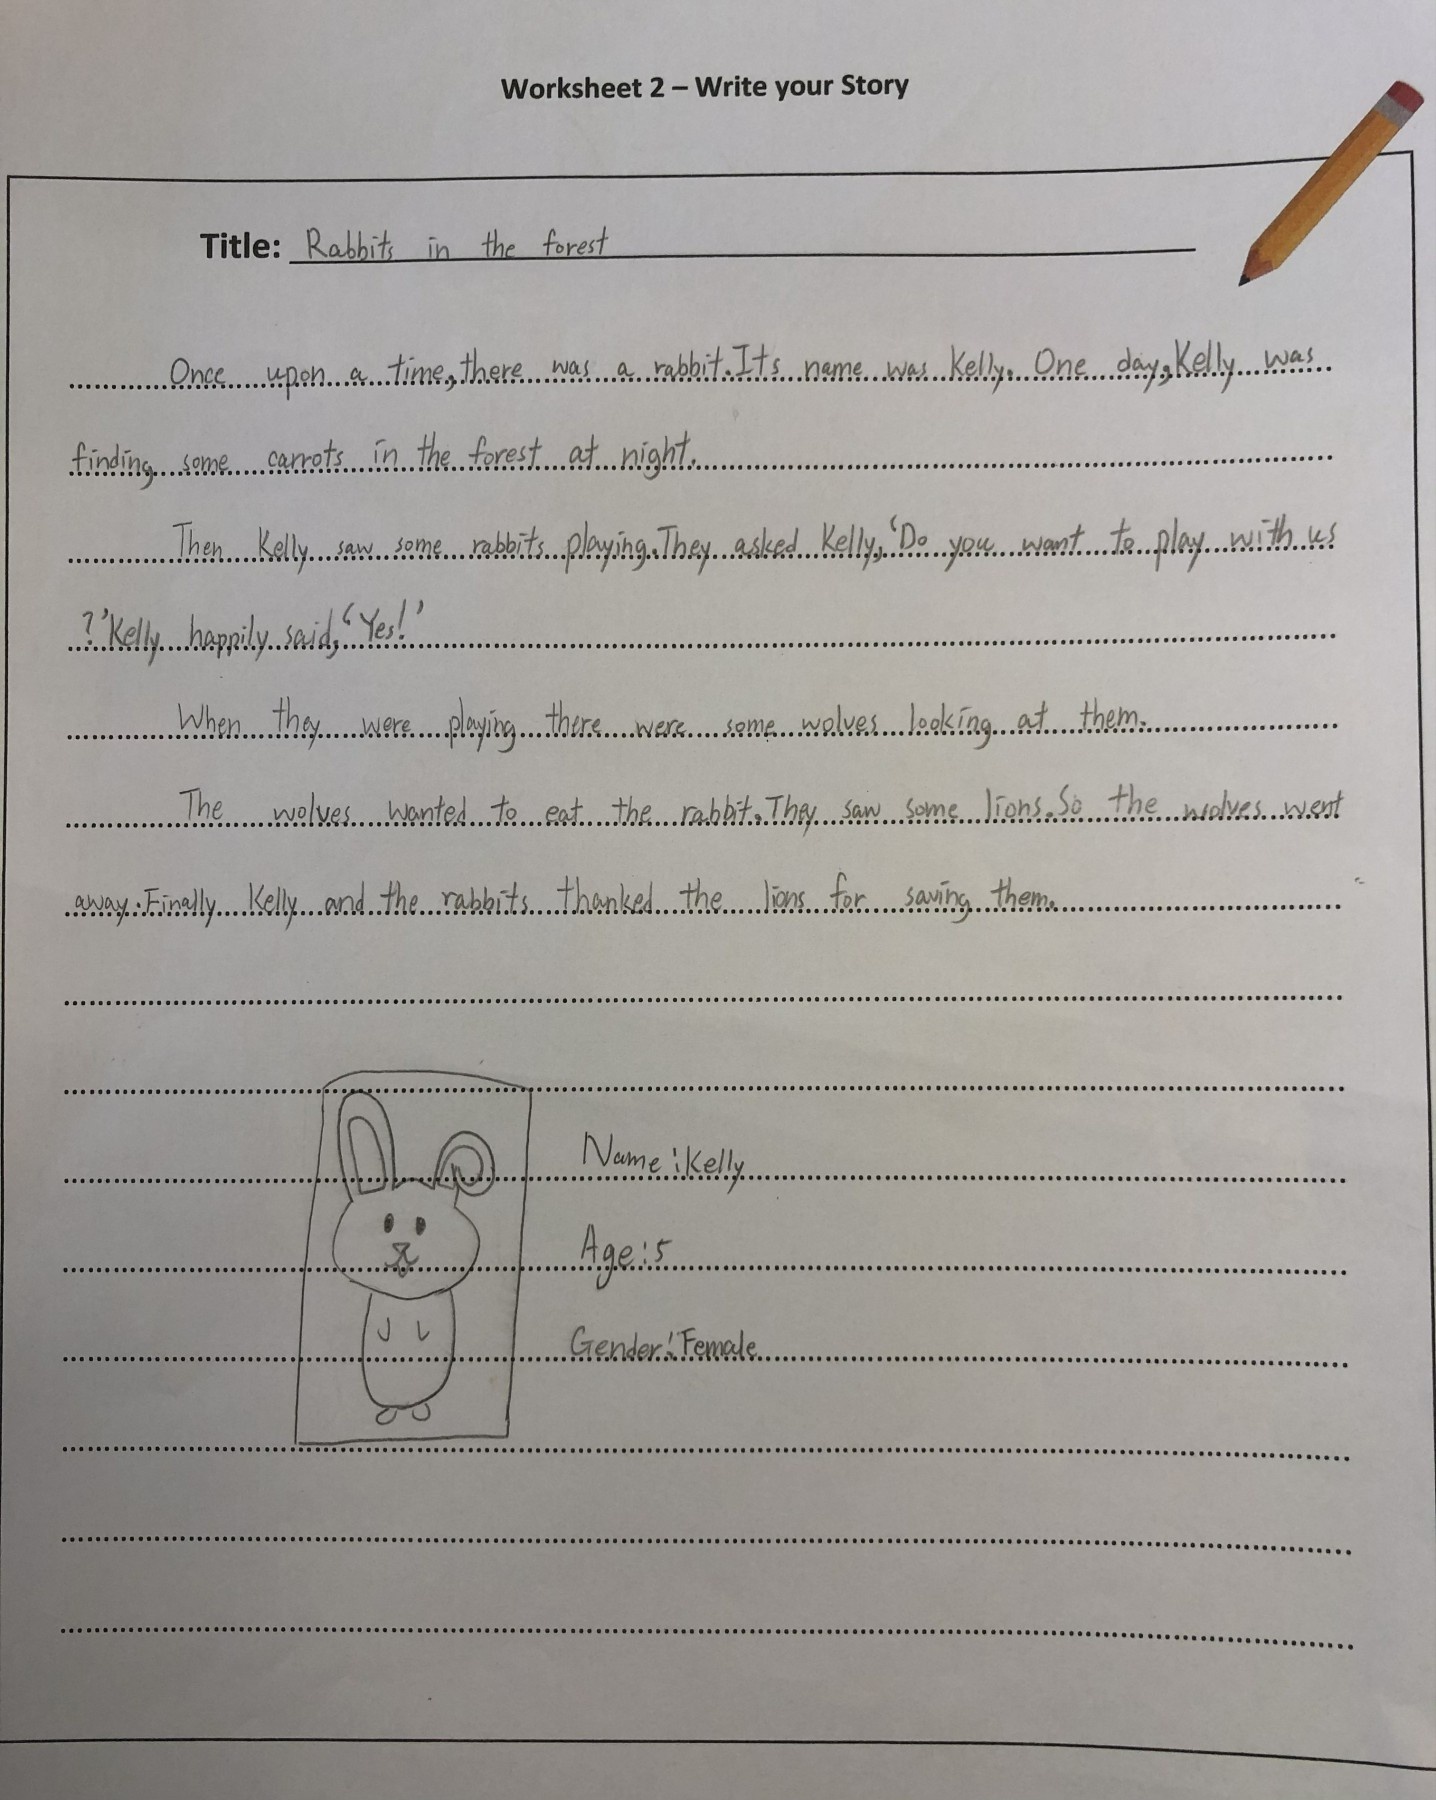 Worksheet 2 – Write your Story
Title: Rabbits in the forest
Once upon a time, there was a rabbit. Its name was Kelly. One day, Kelly was
finding some carrots in the forest at night.
Then Kelly saw some rabbits playing. They asked Kelly, 'Do you want to play with us
?' Kelly happily said, 'Yes!'
When they were playing there were some wolves looking at them.
The wolves wanted to eat the rabbit. They saw some lions. So the wolves went
away. Finally Kelly and the rabbits thanked the lions for saving them.
Name: Kelly
Age: 5
Gender: Female